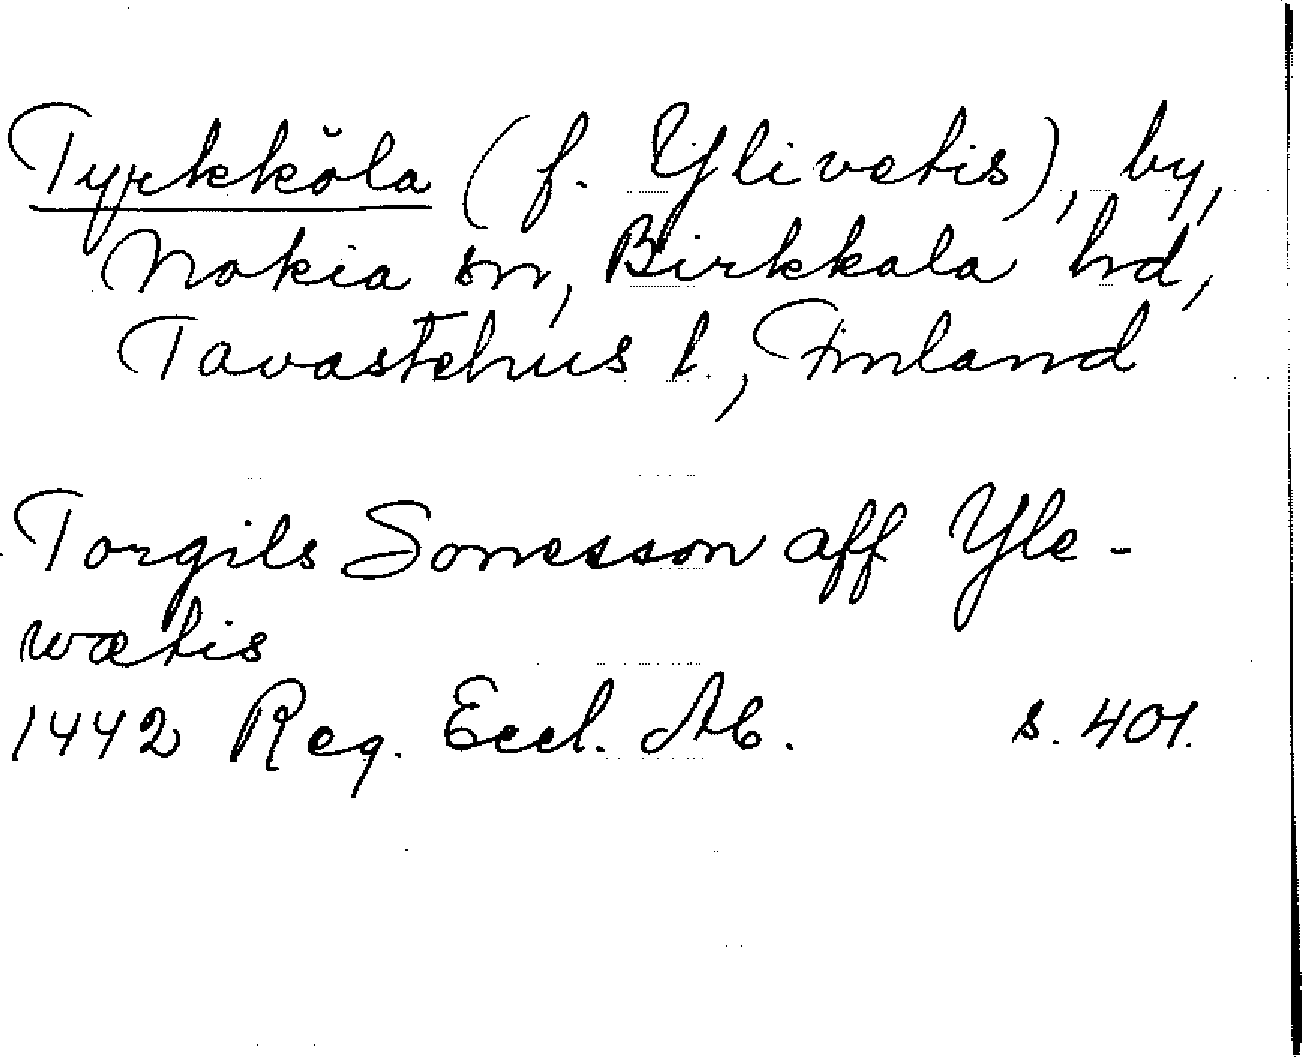 Tyrkkölä (f. Ylivetis), by,
Nokia sn, Birkkala hd,
Tavastehus l., Finland
Torgils Sonesson aff Yle-
wætis
1442 Reg. Eccl. Ab. s. 401.